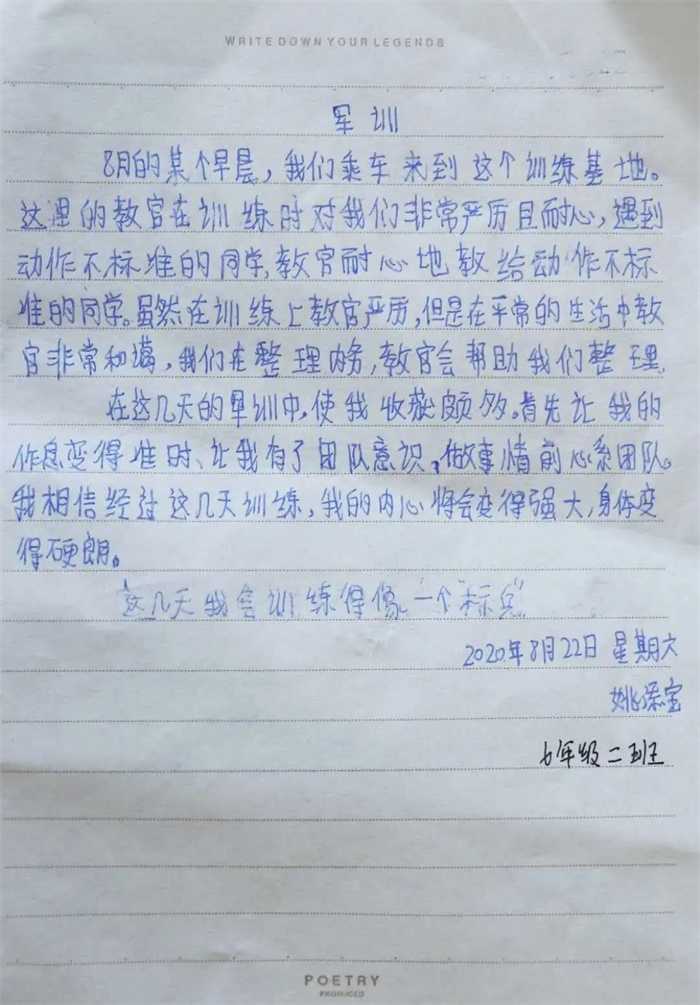 WRITE DOWN YOUR LEGENDS
军训
8月的某个早晨，我们乘车来到这个训练基地。
这里的教官在训练时对我们非常严厉且耐心，遇到
动作不标准的同学，教官耐心地教给动作不标
准的同学。虽然在训练上教官严厉，但是在平常的生活中教
官非常和蔼，我们在整理内务，教官会帮助我们整理。
在这几天的军训中，使我收获颇多。首先让我的
作息变得准时、让我有了团队意识，做事情前心系团队。
我相信经过这几天训练，我的内心将会变得强大，身体变
得硬朗。
这几天我会训练得像一个“标兵”
2020年8月22日 星期六
姚添宝
6年级二班
POETRY
PRODUCED